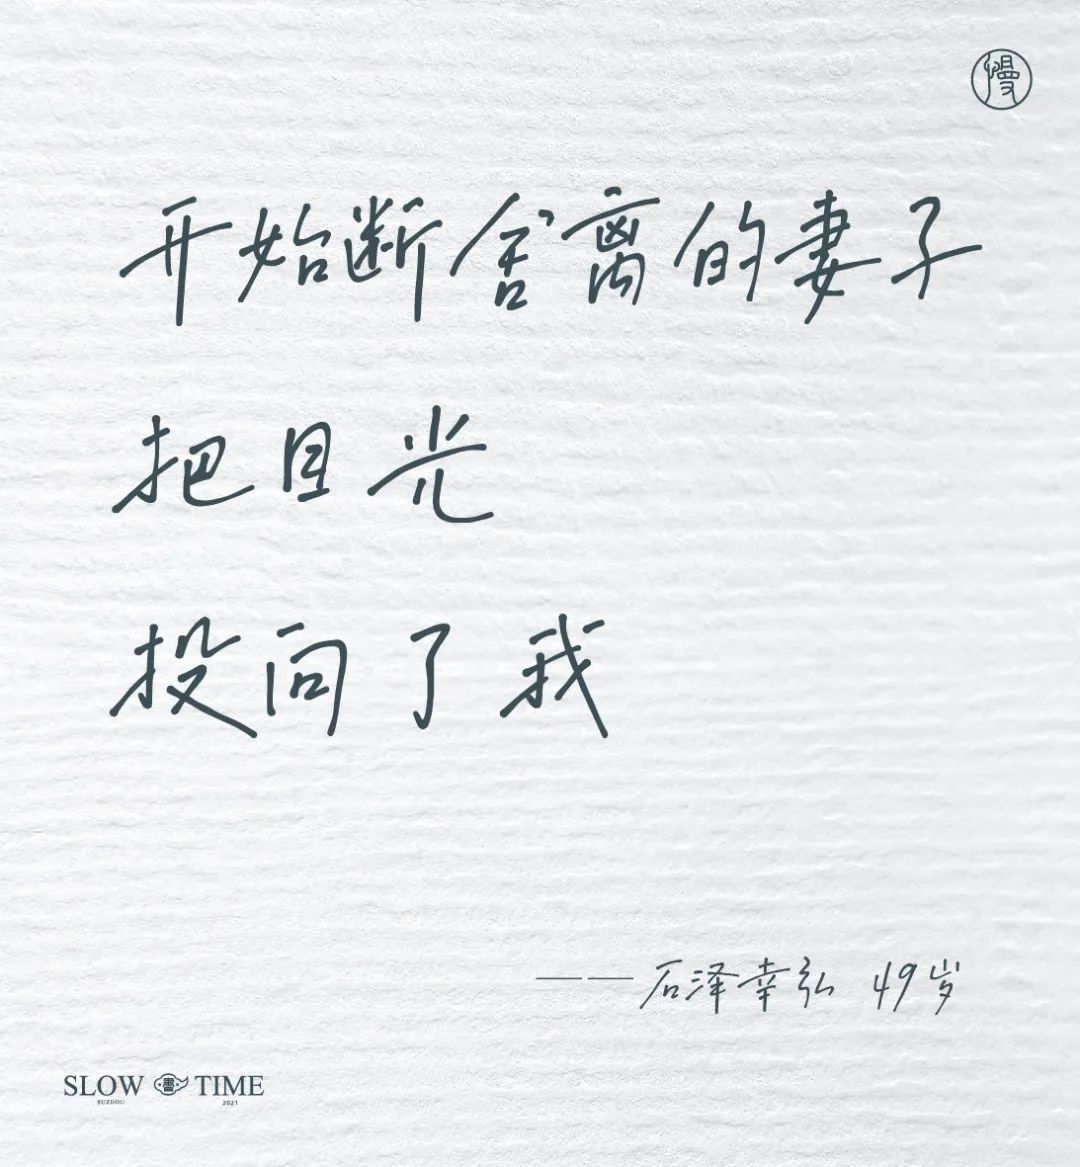 慢
开始断舍离的妻子
把目光
投向了我
——石泽幸弘 49岁
SLOW 書 TIME
SUZHOU 2021